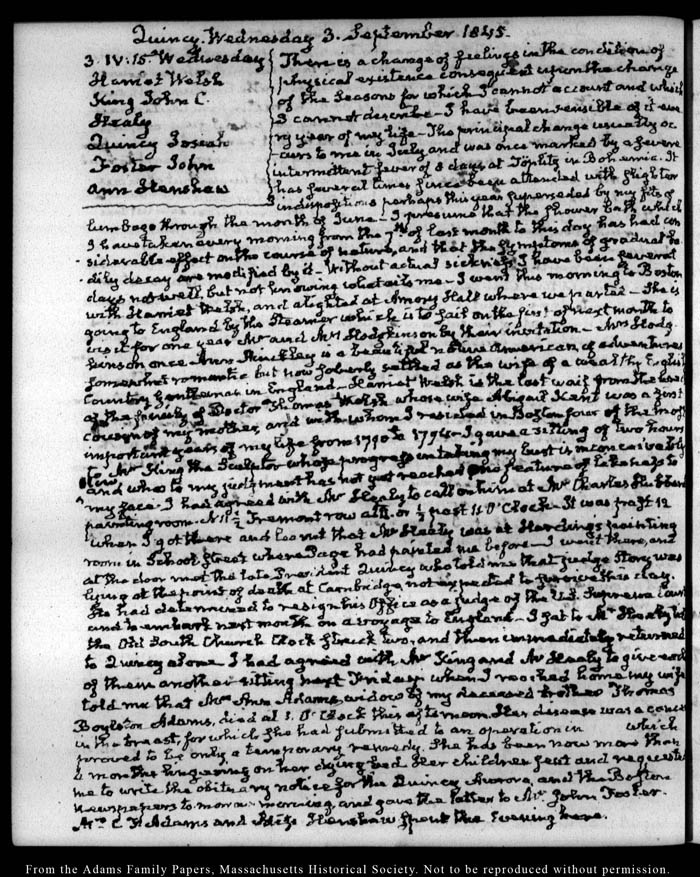 Quincy. Wednesday 3. September 1845.
3. IV:15. Wednesday
Harriet Welsh
King John C.
Healy
Quincy Josiah
Foster John
Ann Henshaw
There is a change of feelings in the condition of
physical existence consequent upon the change
of the Seasons for which I cannot account and which
I cannot describe— I have been sensible of it eve
ry year of my life— The principal change usually oc
curs to me in July and was once marked by a severe
intermittent fever of 8 days at Töplitz in Bohemia. It
has several times since been attended with slighter
indispositions perhaps this year superseded by my fits of
lumbago through the month of June— I presume that the shower bath which
I have taken every morning from the 7th of last month to this day has had con
siderable effect on the course of nature, and that the symptoms of gradual bo
dily decay are modified by it— Without actual sickness I have been several
days not well, but not knowing what ails me— I went this morning to Boston
with Harriet Welsh, and alighted at Amory Hall where we parted— She is
going to England by the Steamer which is to sail on the first of next month to
visit for one year Mr and Mrs Hodgkinson by their invitation— Mrs Hodg
kinson once Ann Hinckley is a beautiful native American, of adventures
somewhat romantic but now soberly settled as the wife of a wealthy English
Country Gentleman in England— Harriet Welsh is the last waif from the wreck
of the family of Doctor Thomas Welsh whose wife Abigail Kent was a first
cousin of my mother, and with whom I resided in Boston four of the most
important years of my life from 1790 to 1794— I gave a sitting of two hours
to Mr King the Sculptor whose progress in taking my bust is inconceivably
slow and who to my judgment has not yet reached one feature of likeness to
my face— I had agreed with Mr Healy to call on him at Mr Charles
painting room N. 11½ Tremont row at 11. or ½ past 11 O'Clock— It was past 12
when I got there and found that Mr Healy was at Harding's painting
room in School Street where Page had painted me before— I went there, and
at the door met the late President Quincy who told me that judge Story was
lying at the point of death at Cambridge, not expected to survive this day.
He had determined to resign his Office as a judge of the U.S. Supreme Court
and to embark next month on a voyage to England— I sat to Mr Healy till
the Old South Church Clock struck two, and then immediately returned
to Quincy alone. I had agreed with Mr King and Mr Healy to give each
of them another sitting next Friday— when I reached home my wife
told me that Mrs Ann Adams, widow of my deceased brother Thomas
Boylston Adams, died at 1. O'Clock this afternoon. Her disease was a cancer
in the breast, for which she had submitted to an operation in which
proved to be only a temporary remedy. She has been now more than
2 months lingering on her dying bed. Her children sent and requested
me to write the obituary notice for the Quincy Aurora, and the Boston
newspapers to morrow morning, and gave the latter to Mr John Foster.
Mrs C. F. Adams and Henshaw spent the Evening here.
From the Adams Family Papers, Massachusetts Historical Society. Not to be reproduced without permission.